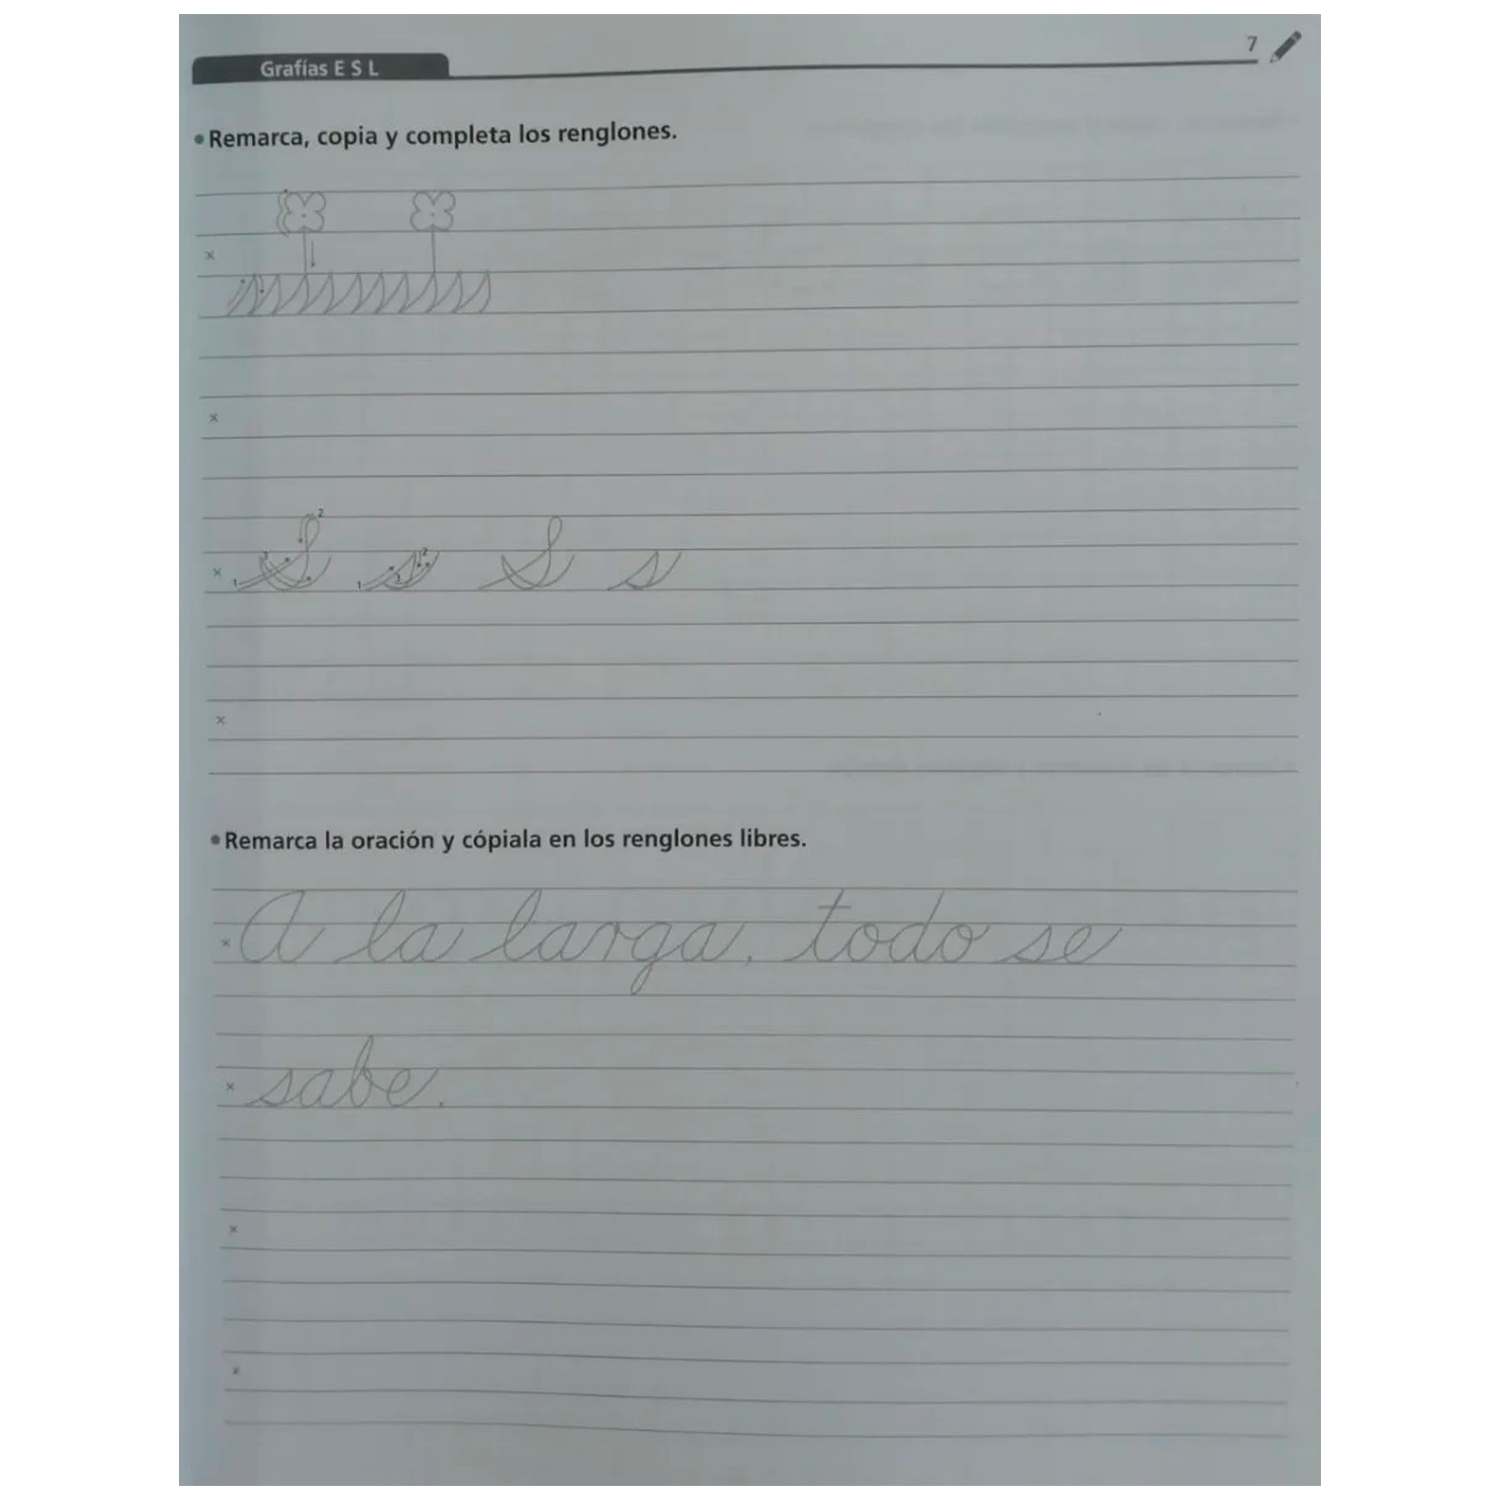 7
Grafías E S L
• Remarca, copia y completa los renglones.
×
×
× 1 2 3 S 1 2 3 s S s
×
• Remarca la oración y cópiala en los renglones libres.
× A la larga, todo se
× sabe.
×
×